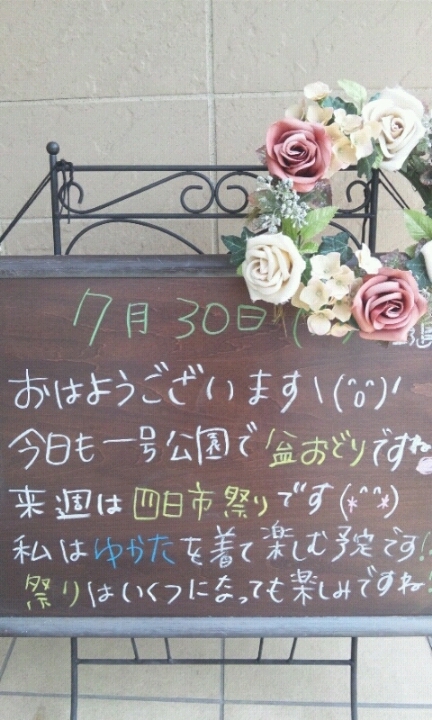 7月30日(
おはようございます\(^o^)/
今日も一号公園で盆おどりですね
来週は四日市祭りです(*^^*)
私はゆかたを着て楽しむ予定です!
祭りはいくつになっても楽しみですね!